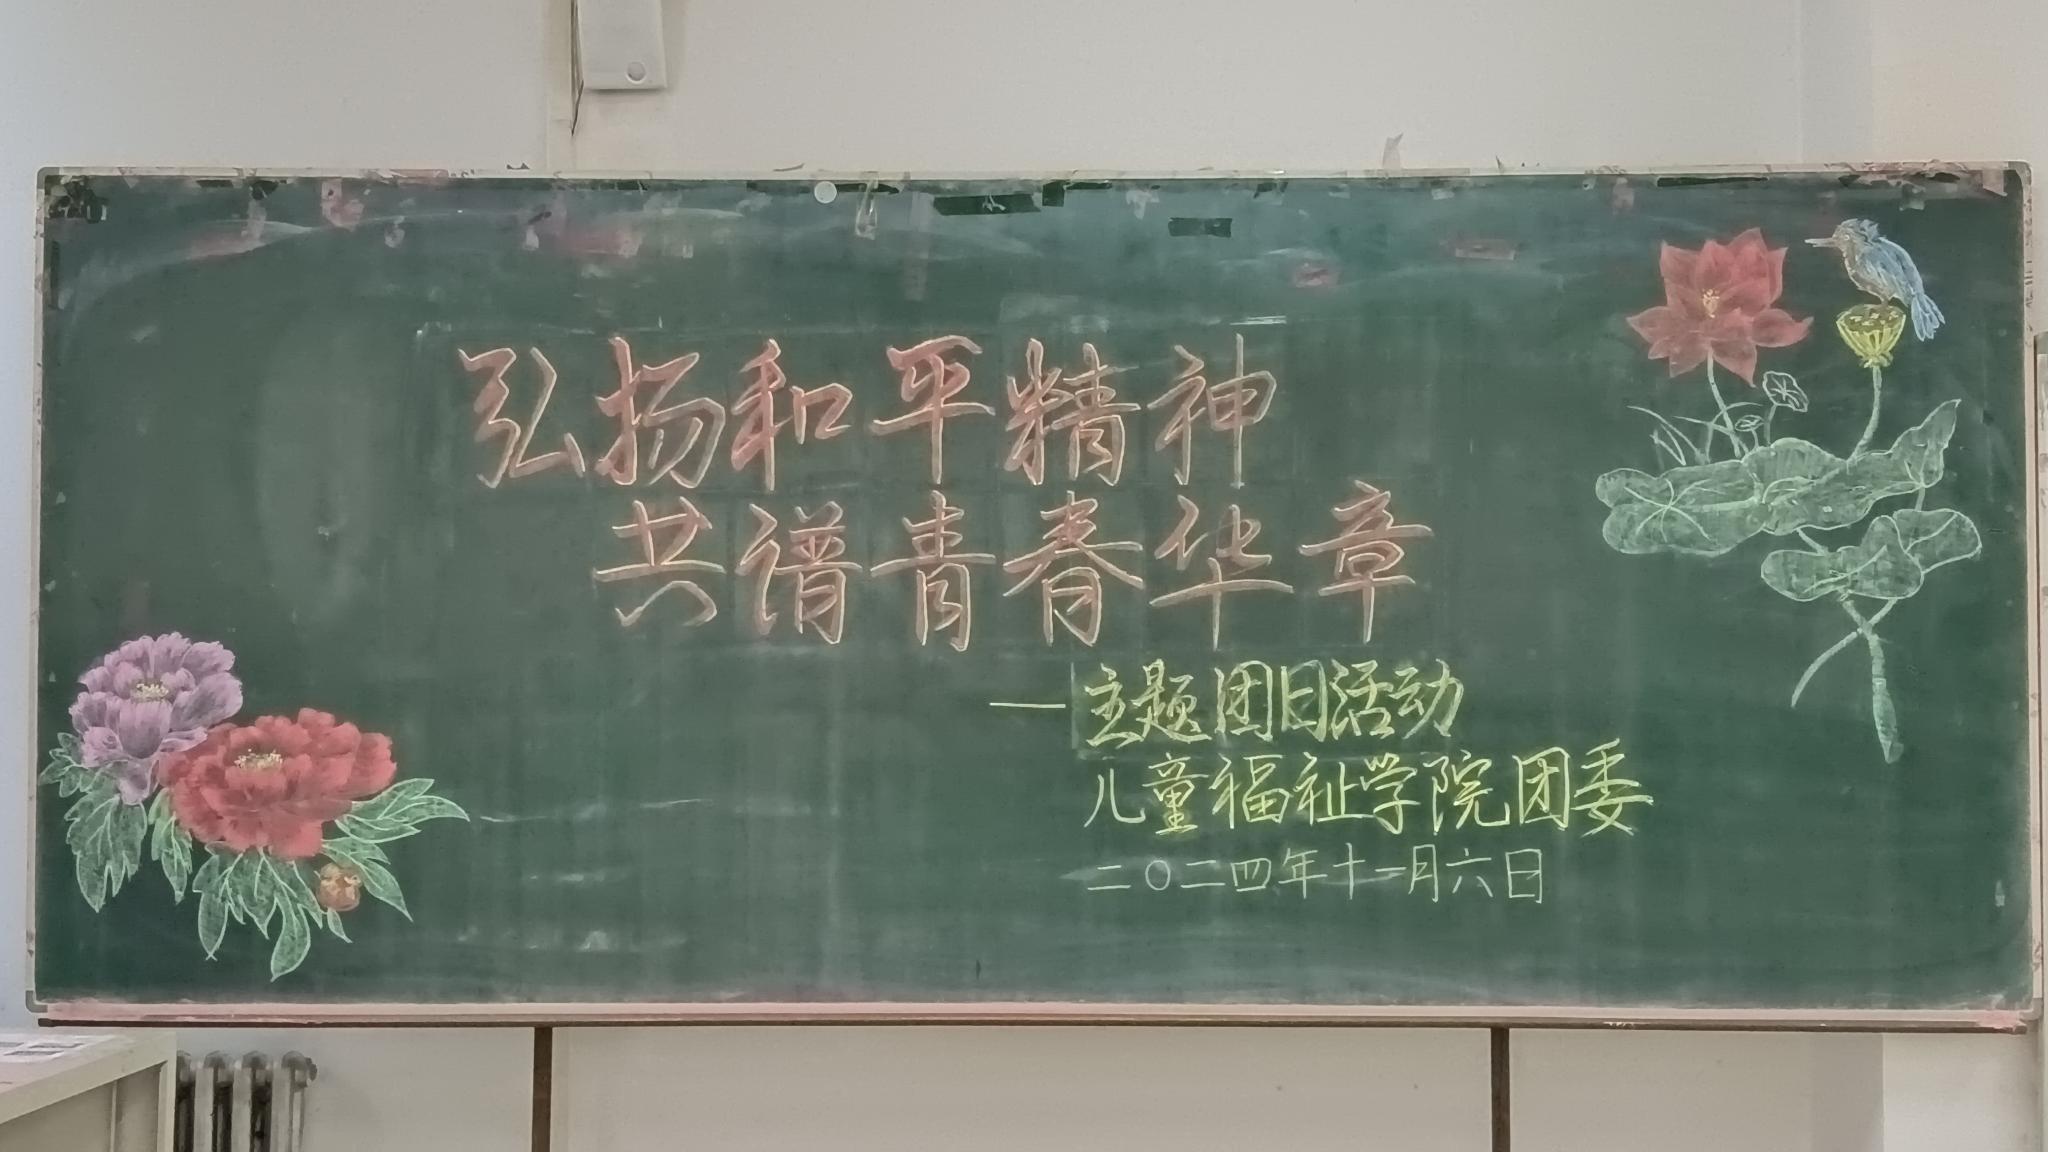 弘扬和平精神
共谱青春华章
—主题团日活动
儿童福祉学院团委
二〇二四年十一月六日